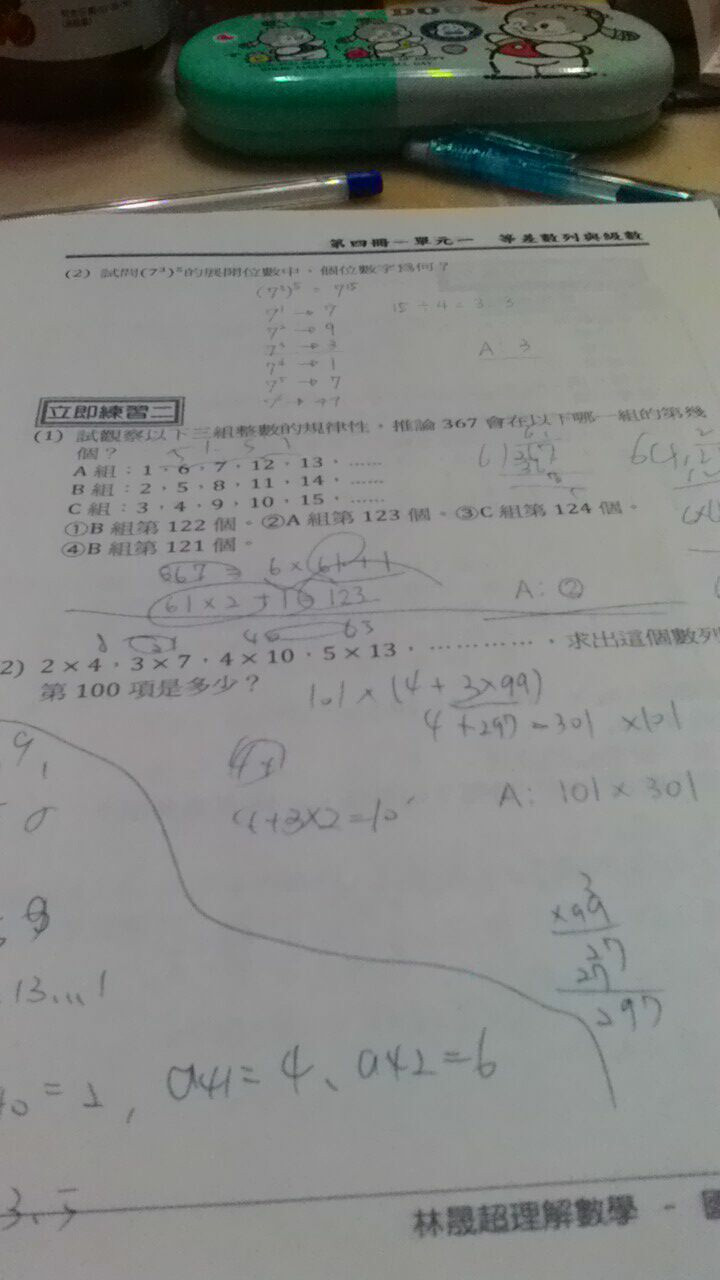 第四冊－單元一 等差數列與級數
(2) 試問(7³)⁵的展開位數中，個位數字為何？
(7³)⁵ = 7¹⁵
7¹ → 7 15 ÷ 4 = 3...3
7² → 9
7³ → 3 A: 3
7⁴ → 1
7⁵ → 7
立即練習二
(1) 試觀察以下三組整數的規律性，推論 367 會在以下哪一組的第幾
個？
A 組：1，6，7，12，13，……
B 組：2，5，8，11，14，……
C 組：3，4，9，10，15，……
①B 組第 122 個。②A 組第 123 個。③C 組第 124 個。
④B 組第 121 個。
367 = 6 × 61 + 1
61 × 2 + 1 = 123 A: ②
40 63
2) 2×4，3×7，4×10，5×13，…………，求出這個數列
第 100 項是多少？
101 × (4 + 3×99)
4 + 297 = 301 ×101
4+3×2=10
A: 101 × 301
3
×99
27
27
297
13...1
= 2, a41 = 4、a42 = 6
3、5
林晟超理解數學 -